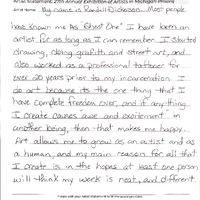 Artist Statement: 27th Annual Exhibition of Artists in Michigan Prisons
My name is Randall Dickerson. Most people
have known me as "Ghost One" I have been an
artist for as long as I can remember. I started
drawing, doing grafitti and street art, and
also worked as a professional tattooer for
over 20 years prior to my incarceration. I
do art because its the one thing that I
have complete freedom over, and if anything
I create causes awe and excitement in
another being, then that makes me happy.
Art allows me to grow as an artist and as
a human, and my main reason for all that
I create is in the hopes at least one person
will think my work is neat, and different.